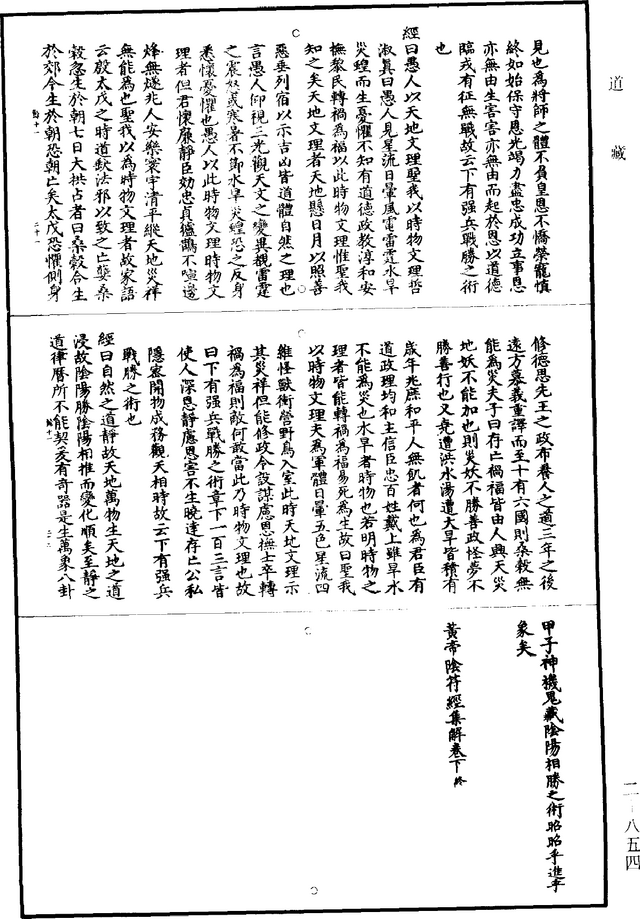 道藏
見也為將師之體不負皇恩不憍榮寵慎
終如始保守恩光竭力盡忠成功立事恩
亦無由生害害亦無由而起於恩以道德
臨戎有征無戰故云下有强兵戰勝之術
也
經曰愚人以天地文理聖我以時物文理哲
淑真曰愚人見星流日暈風電雷霆水旱
災蝗而生憂懼不知有道德政教淳和安
撫黎民轉禍為福以此時物文理惟聖我
知之矣天地文理者天地懸日月以照善
惡垂列宿以示吉凶皆道體自然之理也
言愚人仰視三光觀天文之變異覩雷霆
之震怒或寒暑不節水旱災蝗恐之反身
悉懷憂懼也愚人以此時物文理時物文
理者但君懷廉靜臣効忠貞獯鬻不喧邊
烽無燧兆人安樂寰宇清平縱天地災祥
無能為也聖我以為時物文理者故家語
云殷太戊之時道缺法邪以致之亡孽桑
穀忽生於朝七日大拱占者曰桑穀合生
於郊今生於朝恐朝亡矣太戊恐懼側身
修德思先王之政布養人之適三年之後
遠方慕義重譯而至十有六國則桑穀無
能為災夫子曰存亡禍福皆由人興天災
地妖不能加也則災妖不勝善政怪夢不
勝善行也又堯遭洪水湯遭大旱皆積有
歲年兆庶和平人無飢者何也為君臣有
道政理均和主信臣忠百姓戴上雖旱水
不能為災也水旱者時物也若明時物之
理者皆能轉禍為福易死為生故曰聖我
以時物文理夫為軍體日暈五色星流四
維怪獸衝營野鳥入室此時天地文理示
其災祥但能修政令設謀慮恩撫士卒轉
禍為福則敵何敢當此乃時物文理也故
曰下有强兵戰勝之術章下一百三言皆
使人深思靜慮恩害不生曉達存亡公私
隱密開物成務觀天相時故云下有强兵
戰勝之術也
經曰自然之道靜故天地萬物生天地之道
浸故陰陽勝陰陽相推而變化順矣至靜之
道律曆所不能契爰有奇器是生萬象八卦
甲子神機鬼藏陰陽相勝之術昭昭乎進乎
象矣
黃帝陰符經集解卷下終
二-八五四